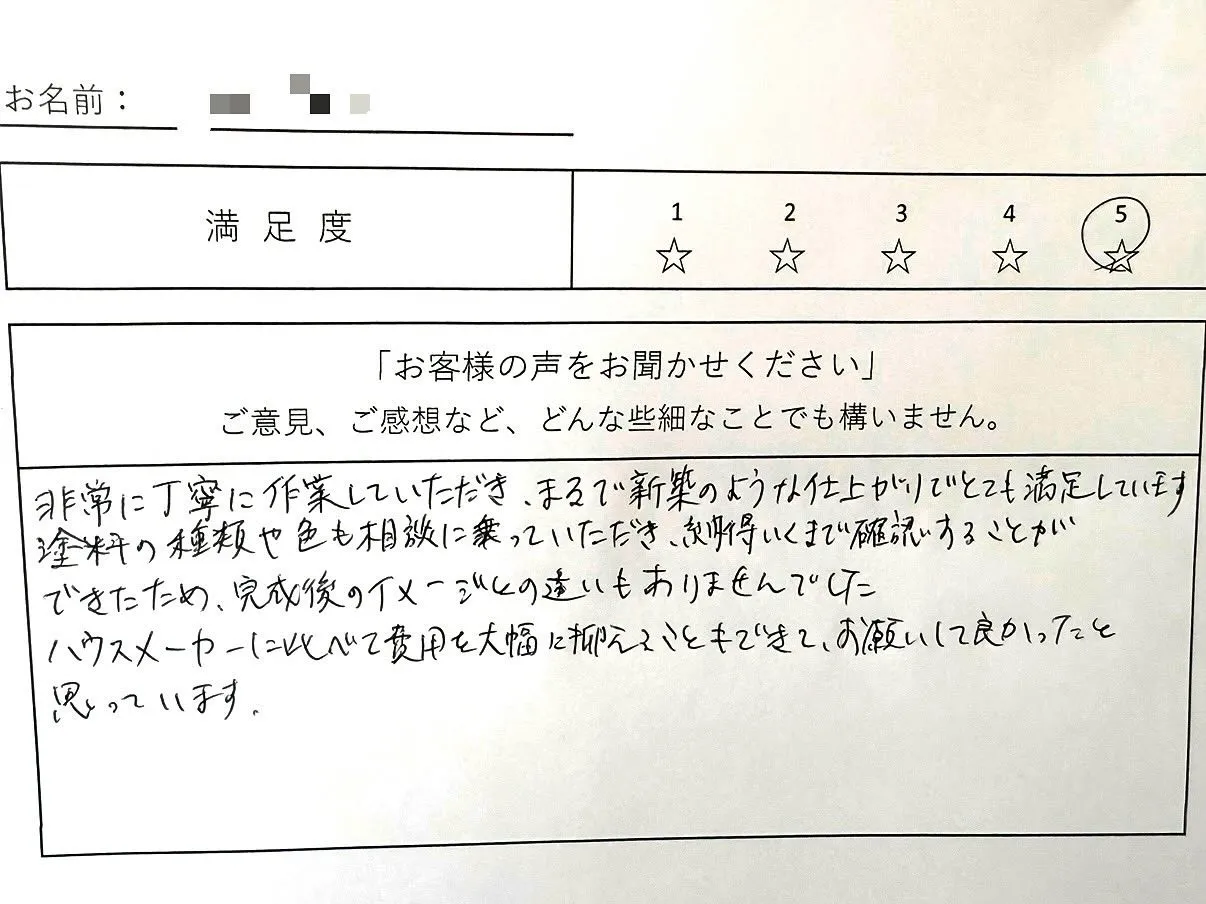 お名前：
満足度
1 2 3 4 5
☆ ☆ ☆ ☆ ☆
「お客様の声をお聞かせください」
ご意見、ご感想など、どんな些細なことでも構いません。
非常に丁寧に作業していただき、まるで新築のような仕上がりでとても満足しています
塗料の種類や色も相談に乗っていただき、納得いくまで確認することが
できたため、完成後のイメージとの違いもありませんでした
ハウスメーカーに比べて費用を大幅に抑えることもできて、お願いして良かったと
思っています.